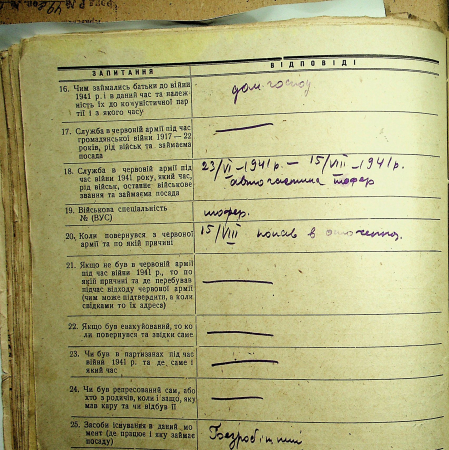 ЗАПИТАННЯ ВІДПОВІДІ
16. Чим займались батьки до війни
1941 р. і в даний час та належ
ність їх до комуністичної пар
тії і з якого часу
дом. госпо
17. Служба в червоній армії під час
громадянської війни 1917—22
років, рід військ та займаєма
посада
18. Служба в червоній армії під
час війни 1941 року, який час,
рід військ, останнє військове
звання та займаєма посада
23/VI - 1941 р. — 15/VIII - 1941 р.
авточастина шофер
19. Військова спеціальність
№ (ВУС)
шофер.
20. Коли повернувся з червоної
армії та по якій причині
15/VIII попав в оточення.
21. Якщо не був в червоній армії
під час війни 1941 р., то по
якій причині та де перебував
підчас відходу червоної армії
(чим може підтвердити, а коли
свідками то їх адреса)
22. Якщо був евакуйований, то ко
ли повернувся та звідки саме
23. Чи був в партизанах під час
війни 1941 р. та де, саме і
який час
24. Чи був репресований сам, або
хто з родичів, коли і защо, яку
мав кару та чи відбув її
25. Засоби існування в даний мо
мент (де працює і яку займає
посаду)
Безробітний